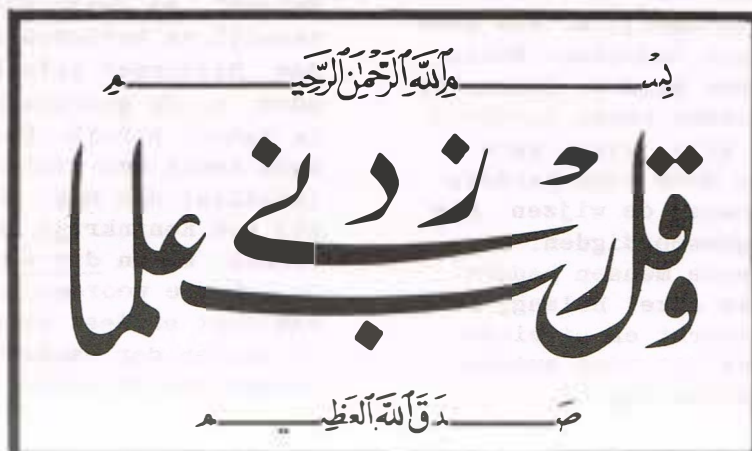 بِسْمِ ٱللَّهِ ٱلرَّحْمَٰنِ ٱلرَّحِيمِ
وقل رب زدني علما
صَدَقَ ٱللَّهُ ٱلعَظِيم